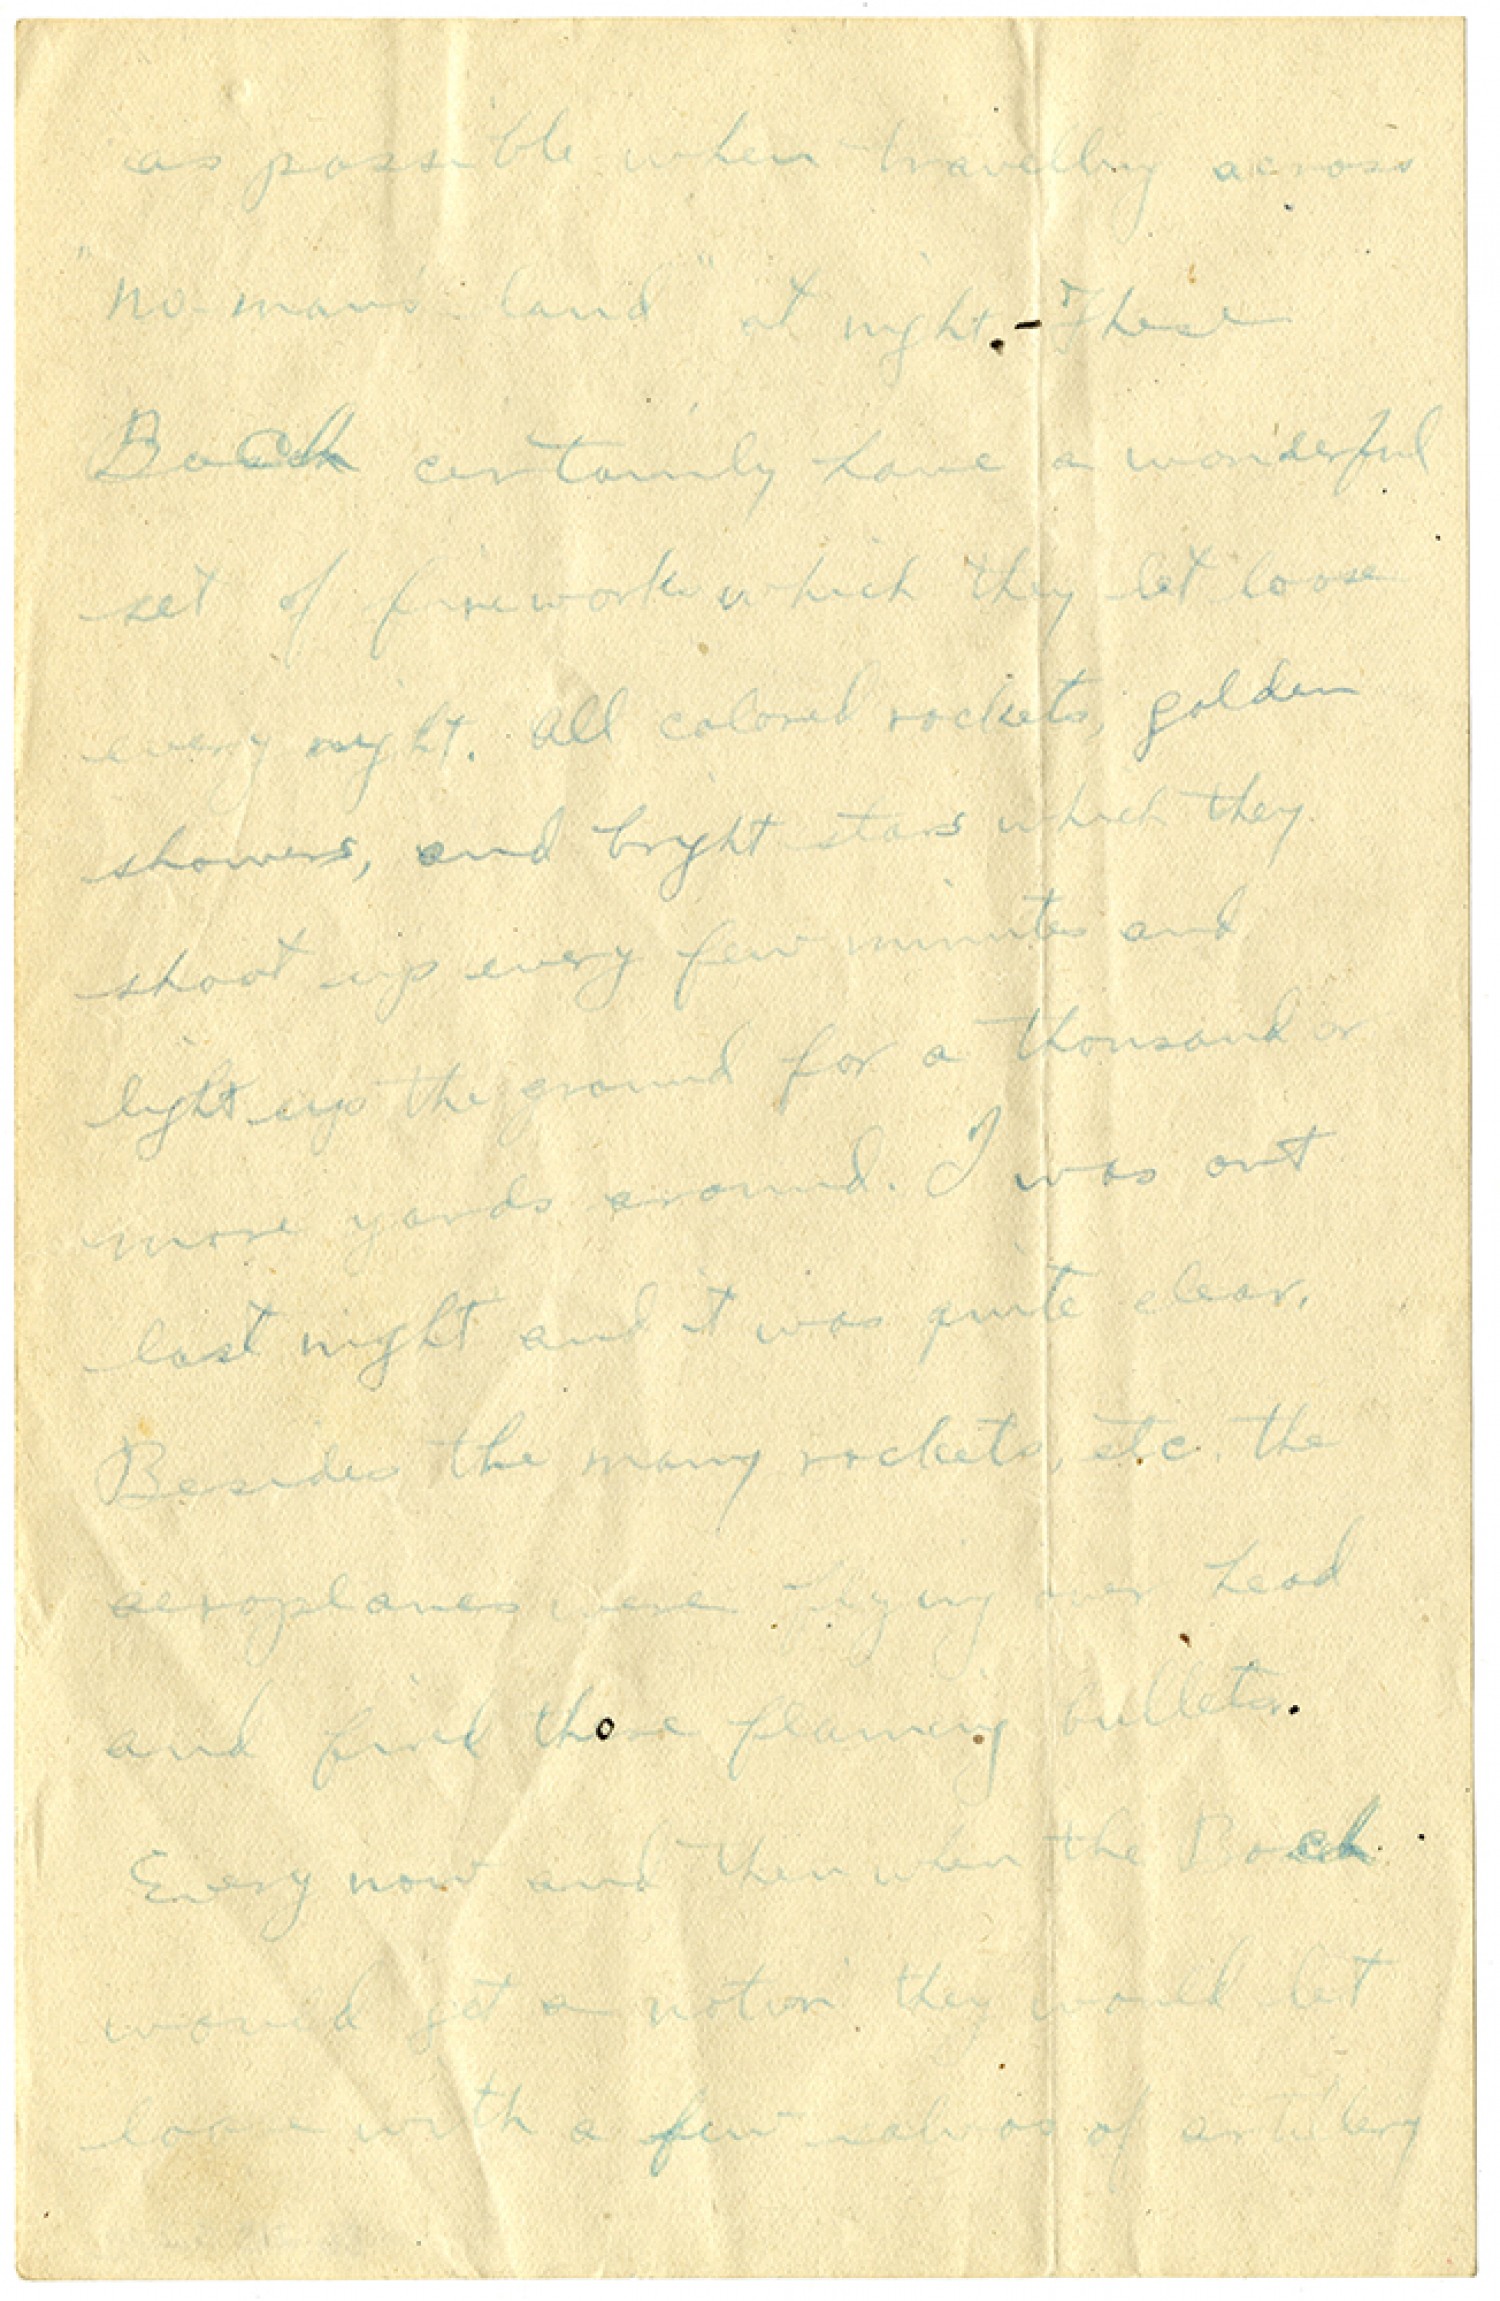 as possible when travelling across
"no-man's land" at night. - These
Boch certainly have a wonderful
set of fireworks which they let loose
every night. All colored rockets, golden
showers, and bright stars which they
shoot up every few minutes and
light up the ground for a thousand or
more yards around. I was out
last night and it was quite clear.
Besides the many rockets, etc. the
aeroplanes were flying over head
and fired those flaming bullets.
Every now and then when the Boch
would get a notion they would let
loose with a few salvos of artillery